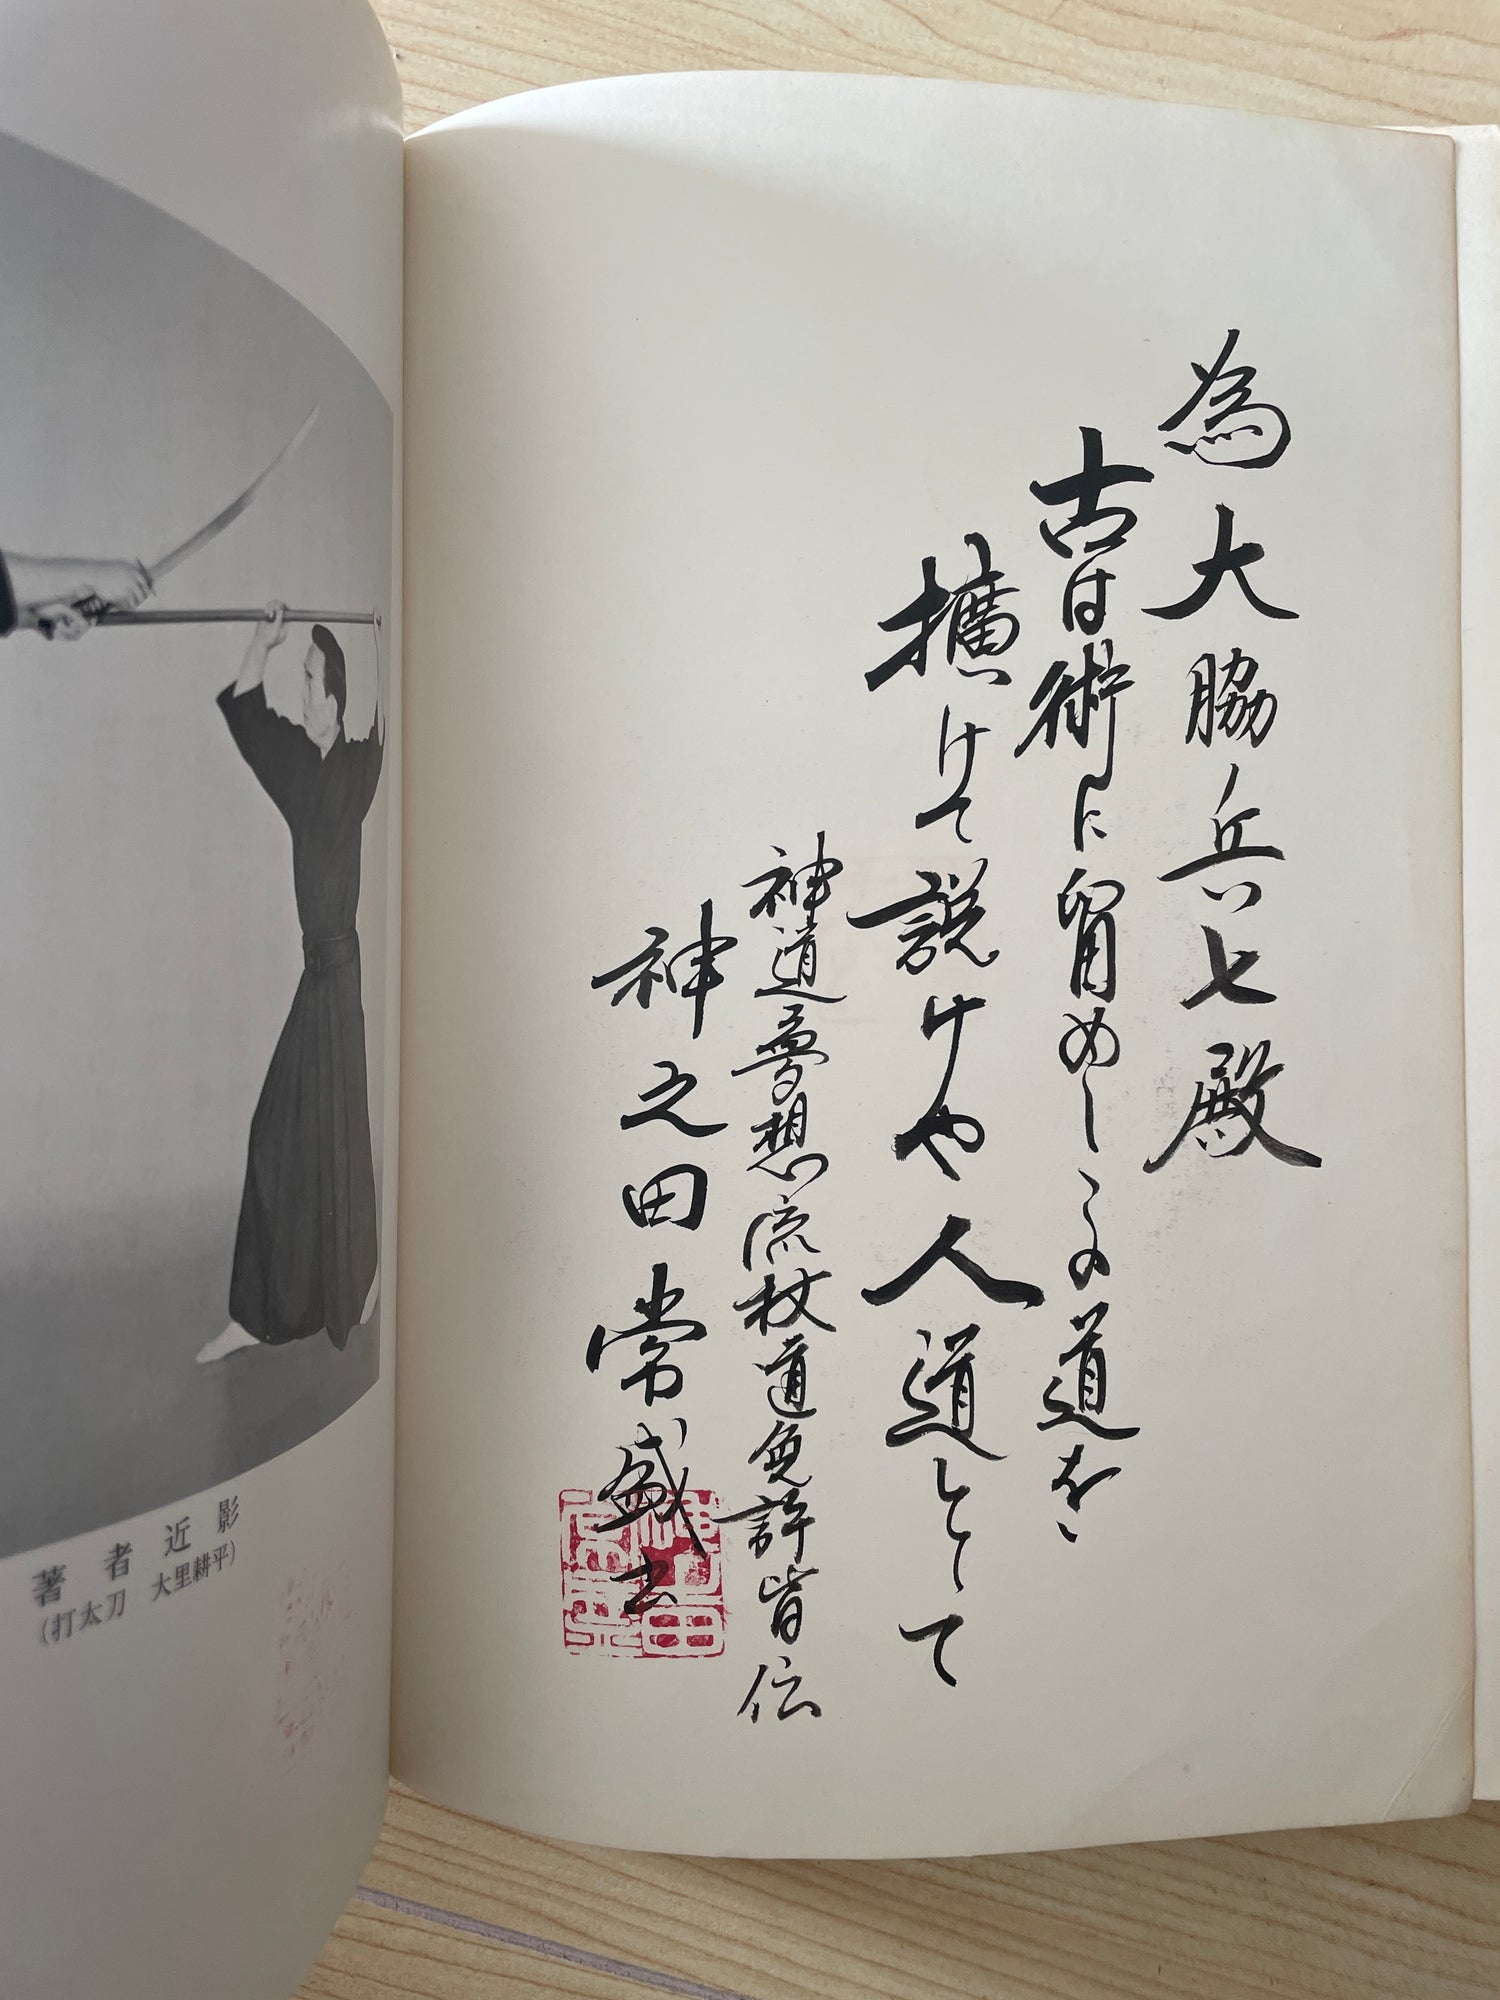 為大脇兵七殿
古は術に留めしこの道を
擴けて説けや人道として
神道夢想流杖道免許皆伝
神之田常盛
著者近影
(打太刀 大里耕平)